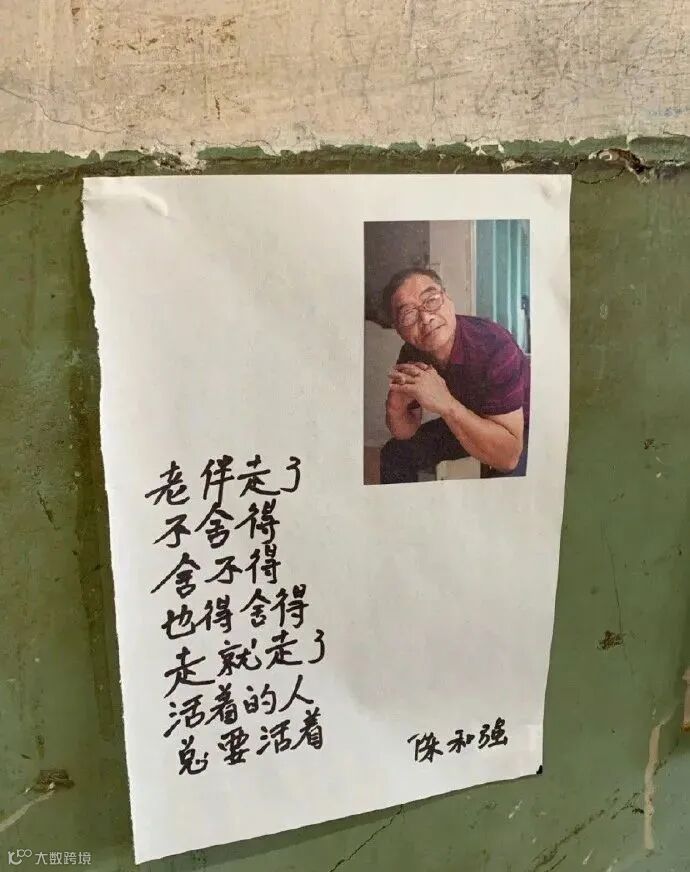 老伴走了
不舍得
舍不得
也得舍得
走就走了
活着的人
总要活着
和强
大数跨境